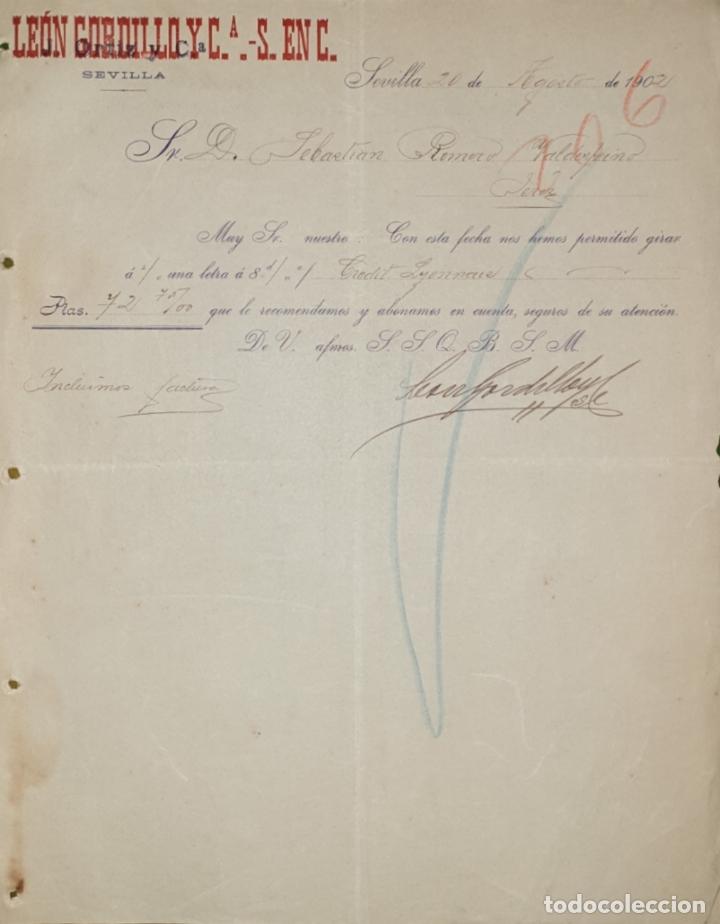 LEÓN GORDILLO Y C.ª.-S. EN C.
J. Ortiz y Cª
SEVILLA
Sevilla 20 de Agosto de 1902
Sr. D. Sebastián Romero Valdespino
Jerez
Muy Sr. nuestro: Con esta fecha nos hemos permitido girar
á una letra á 8 d/ Credit Lyonnais
Ptas. 72 75/00 que le recomendamos y abonamos en cuenta, seguros de su atención.
De V. afmos. S. S. Q. B. S. M.
Incluimos factura
León Gordillo y Cª
todocoleccion.net